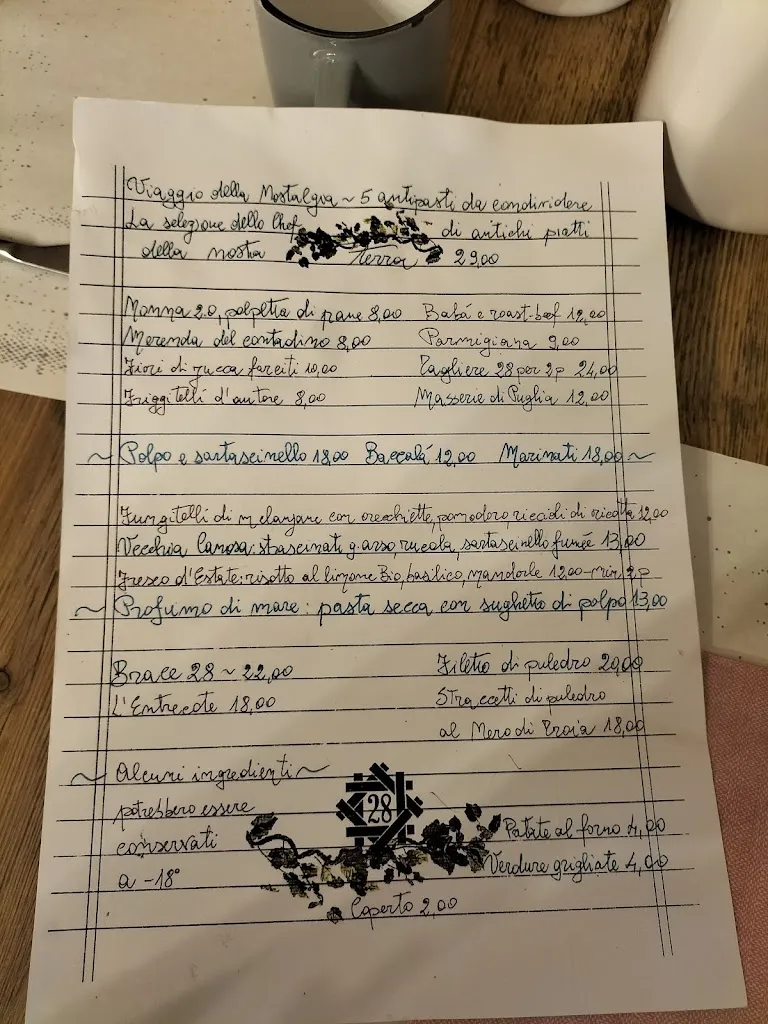 Viaggio della Nostalgia ~ 5 antipasti da condividere
La selezione dello Chef di antichi piatti
della nostra terra 29,00
Manna 2.0, polpetta di pane 8,00 Babá e roast-beef 12,00
Merenda del contadino 8,00 Parmigiana 9,00
Fiori di zucca farciti 10,00 Tagliere 28 per 2 p 24,00
Friggitelli d'autore 8,00 Masserie di Puglia 12,00
~ Polpo e sartascinello 18,00 Baccalá 12,00 Marinati 18,00 ~
Fungitelli di melanzane con orecchiette, pomodoro, riccioli di ricotta 12,00
Vecchia Canosa: strascinati g. arso rucola, sartascinello fumée 13,00
Fresco d'Estate: risotto al limone Bio, basilico, mandorle 12,00 - min. 2 p
~ Profumo di mare: pasta secca con sughetto di polpo 13,00
Brace 28 ~ 22,00 Filetto di puledro 20,00
L'Entrecote 18,00 Straccetti di puledro
al Nero di Troia 18,00
~ Alcuni ingredienti ~
potrebbero essere
conservati
a -18°
28
Patate al forno 4,00
Verdure grigliate 4,00
Coperto 2,00